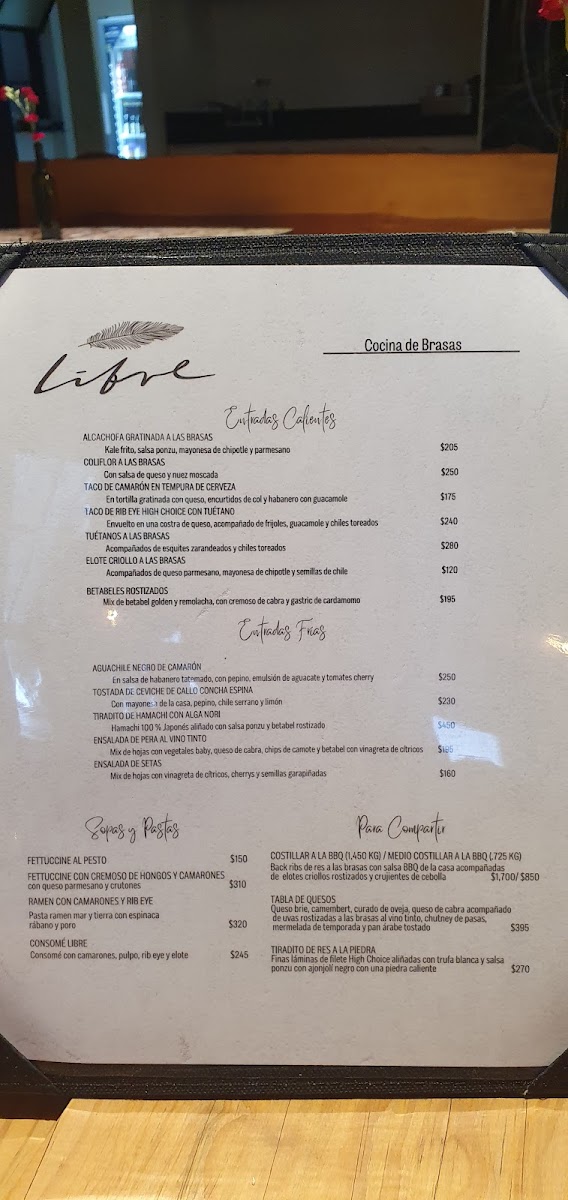 Libre
Cocina de Brasas
Entradas Calientes
ALCACHOFA GRATINADA A LAS BRASAS
Kale frito, salsa ponzu, mayonesa de chipotle y parmesano $205
COLIFLOR A LAS BRASAS
Con salsa de queso y nuez moscada $250
TACO DE CAMARÓN EN TEMPURA DE CERVEZA
En tortilla gratinada con queso, encurtidos de col y habanero con guacamole $175
TACO DE RIB EYE HIGH CHOICE CON TUÉTANO
Envuelto en una costra de queso, acompañado de frijoles, guacamole y chiles toreados $240
TUÉTANOS A LAS BRASAS
Acompañados de esquites zarandeados y chiles toreados $280
ELOTE CRIOLLO A LAS BRASAS
Acompañados de queso parmesano, mayonesa de chipotle y semillas de chile $120
BETABELES ROSTIZADOS
Mix de betabel golden y remolacha, con cremoso de cabra y gastric de cardamomo $195
Entradas Frias
AGUACHILE NEGRO DE CAMARÓN
En salsa de habanero tatemado, con pepino, emulsión de aguacate y tomates cherry $250
TOSTADA DE CEVICHE DE CALLO CONCHA ESPINA
Con mayonesa de la casa, pepino, chile serrano y limón $230
TIRADITO DE HAMACHI CON ALGA NORI
Hamachi 100 % Japonés aliñado con salsa ponzu y betabel rostizado $450
ENSALADA DE PERA AL VINO TINTO
Mix de hojas con vegetales baby, queso de cabra, chips de camote y betabel con vinagreta de cítricos $195
ENSALADA DE SETAS
Mix de hojas con vinagreta de cítricos, cherrys y semillas garapiñadas $160
Sopas y Pastas
FETTUCCINE AL PESTO $150
FETTUCCINE CON CREMOSO DE HONGOS Y CAMARONES
con queso parmesano y crutones $310
RAMEN CON CAMARONES Y RIB EYE
Pasta ramen mar y tierra con espinaca
rábano y poro $320
CONSOMÉ LIBRE
Consomé con camarones, pulpo, rib eye y elote $245
Para Compartir
COSTILLAR A LA BBQ (1,450 KG) / MEDIO COSTILLAR A LA BBQ (.725 KG)
Back ribs de res a las brasas con salsa BBQ de la casa acompañadas
de elotes criollos rostizados y crujientes de cebolla $1,700/ $850
TABLA DE QUESOS
Queso brie, camembert, curado de oveja, queso de cabra acompañado
de uvas rostizadas a las brasas al vino tinto, chutney de pasas,
mermelada de temporada y pan árabe tostado $395
TIRADITO DE RES A LA PIEDRA
Finas láminas de filete High Choice aliñadas con trufa blanca y salsa
ponzu con ajonjolí negro con una piedra caliente $270